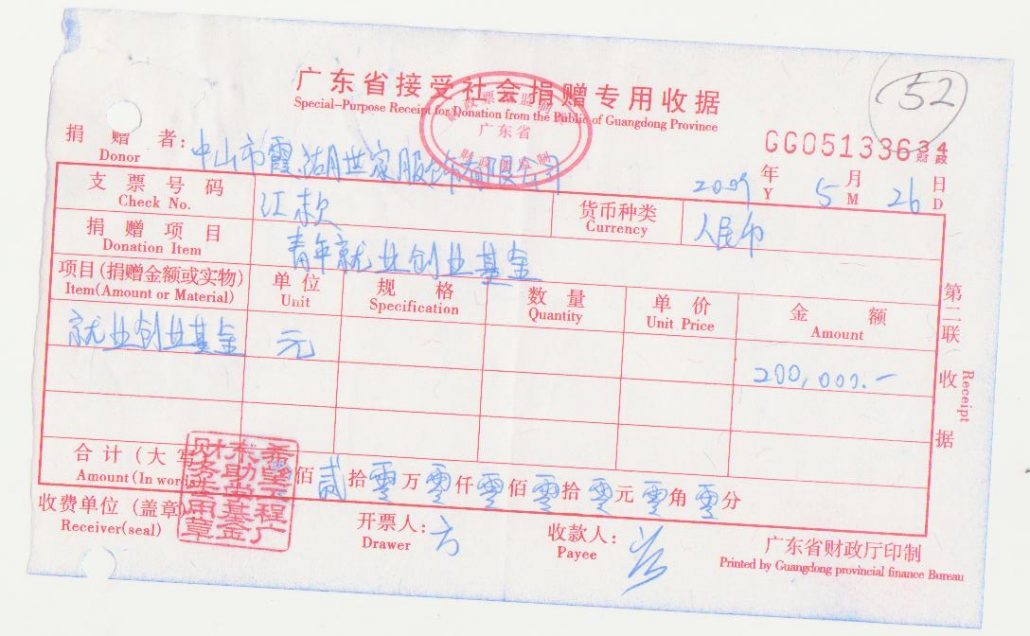 广东省接受社会捐赠专用收据
52
Special-Purpose Receipt for Donation from the Public of Guangdong Province
广东省
GG05133634 财政
捐赠者: 中山市霞湖世家服饰有限公司
Donor
2009 年 5 月 26 日
Y M D
支票号码 汇款 货币种类 人民币
Check No. Currency
捐赠项目 青年就业创业基金
Donation Item
项目(捐赠金额或实物) 单位 规格 数量 单价 金额
Item(Amount or Material) Unit Specification Quantity Unit Price Amount
就业创业基金 元 200,000.-
第二联 收据 Receipt
合计(大写) 佰 贰 拾 零 万 零 仟 零 佰 零 拾 零 元 零 角 零 分
Amount(In words)
希望工程广
财务专用章
收费单位(盖章) 开票人: 方 收款人:
Receiver(seal) Drawer Payee
广东省财政厅印制
Printed by Guangdong provincial finance Bureau